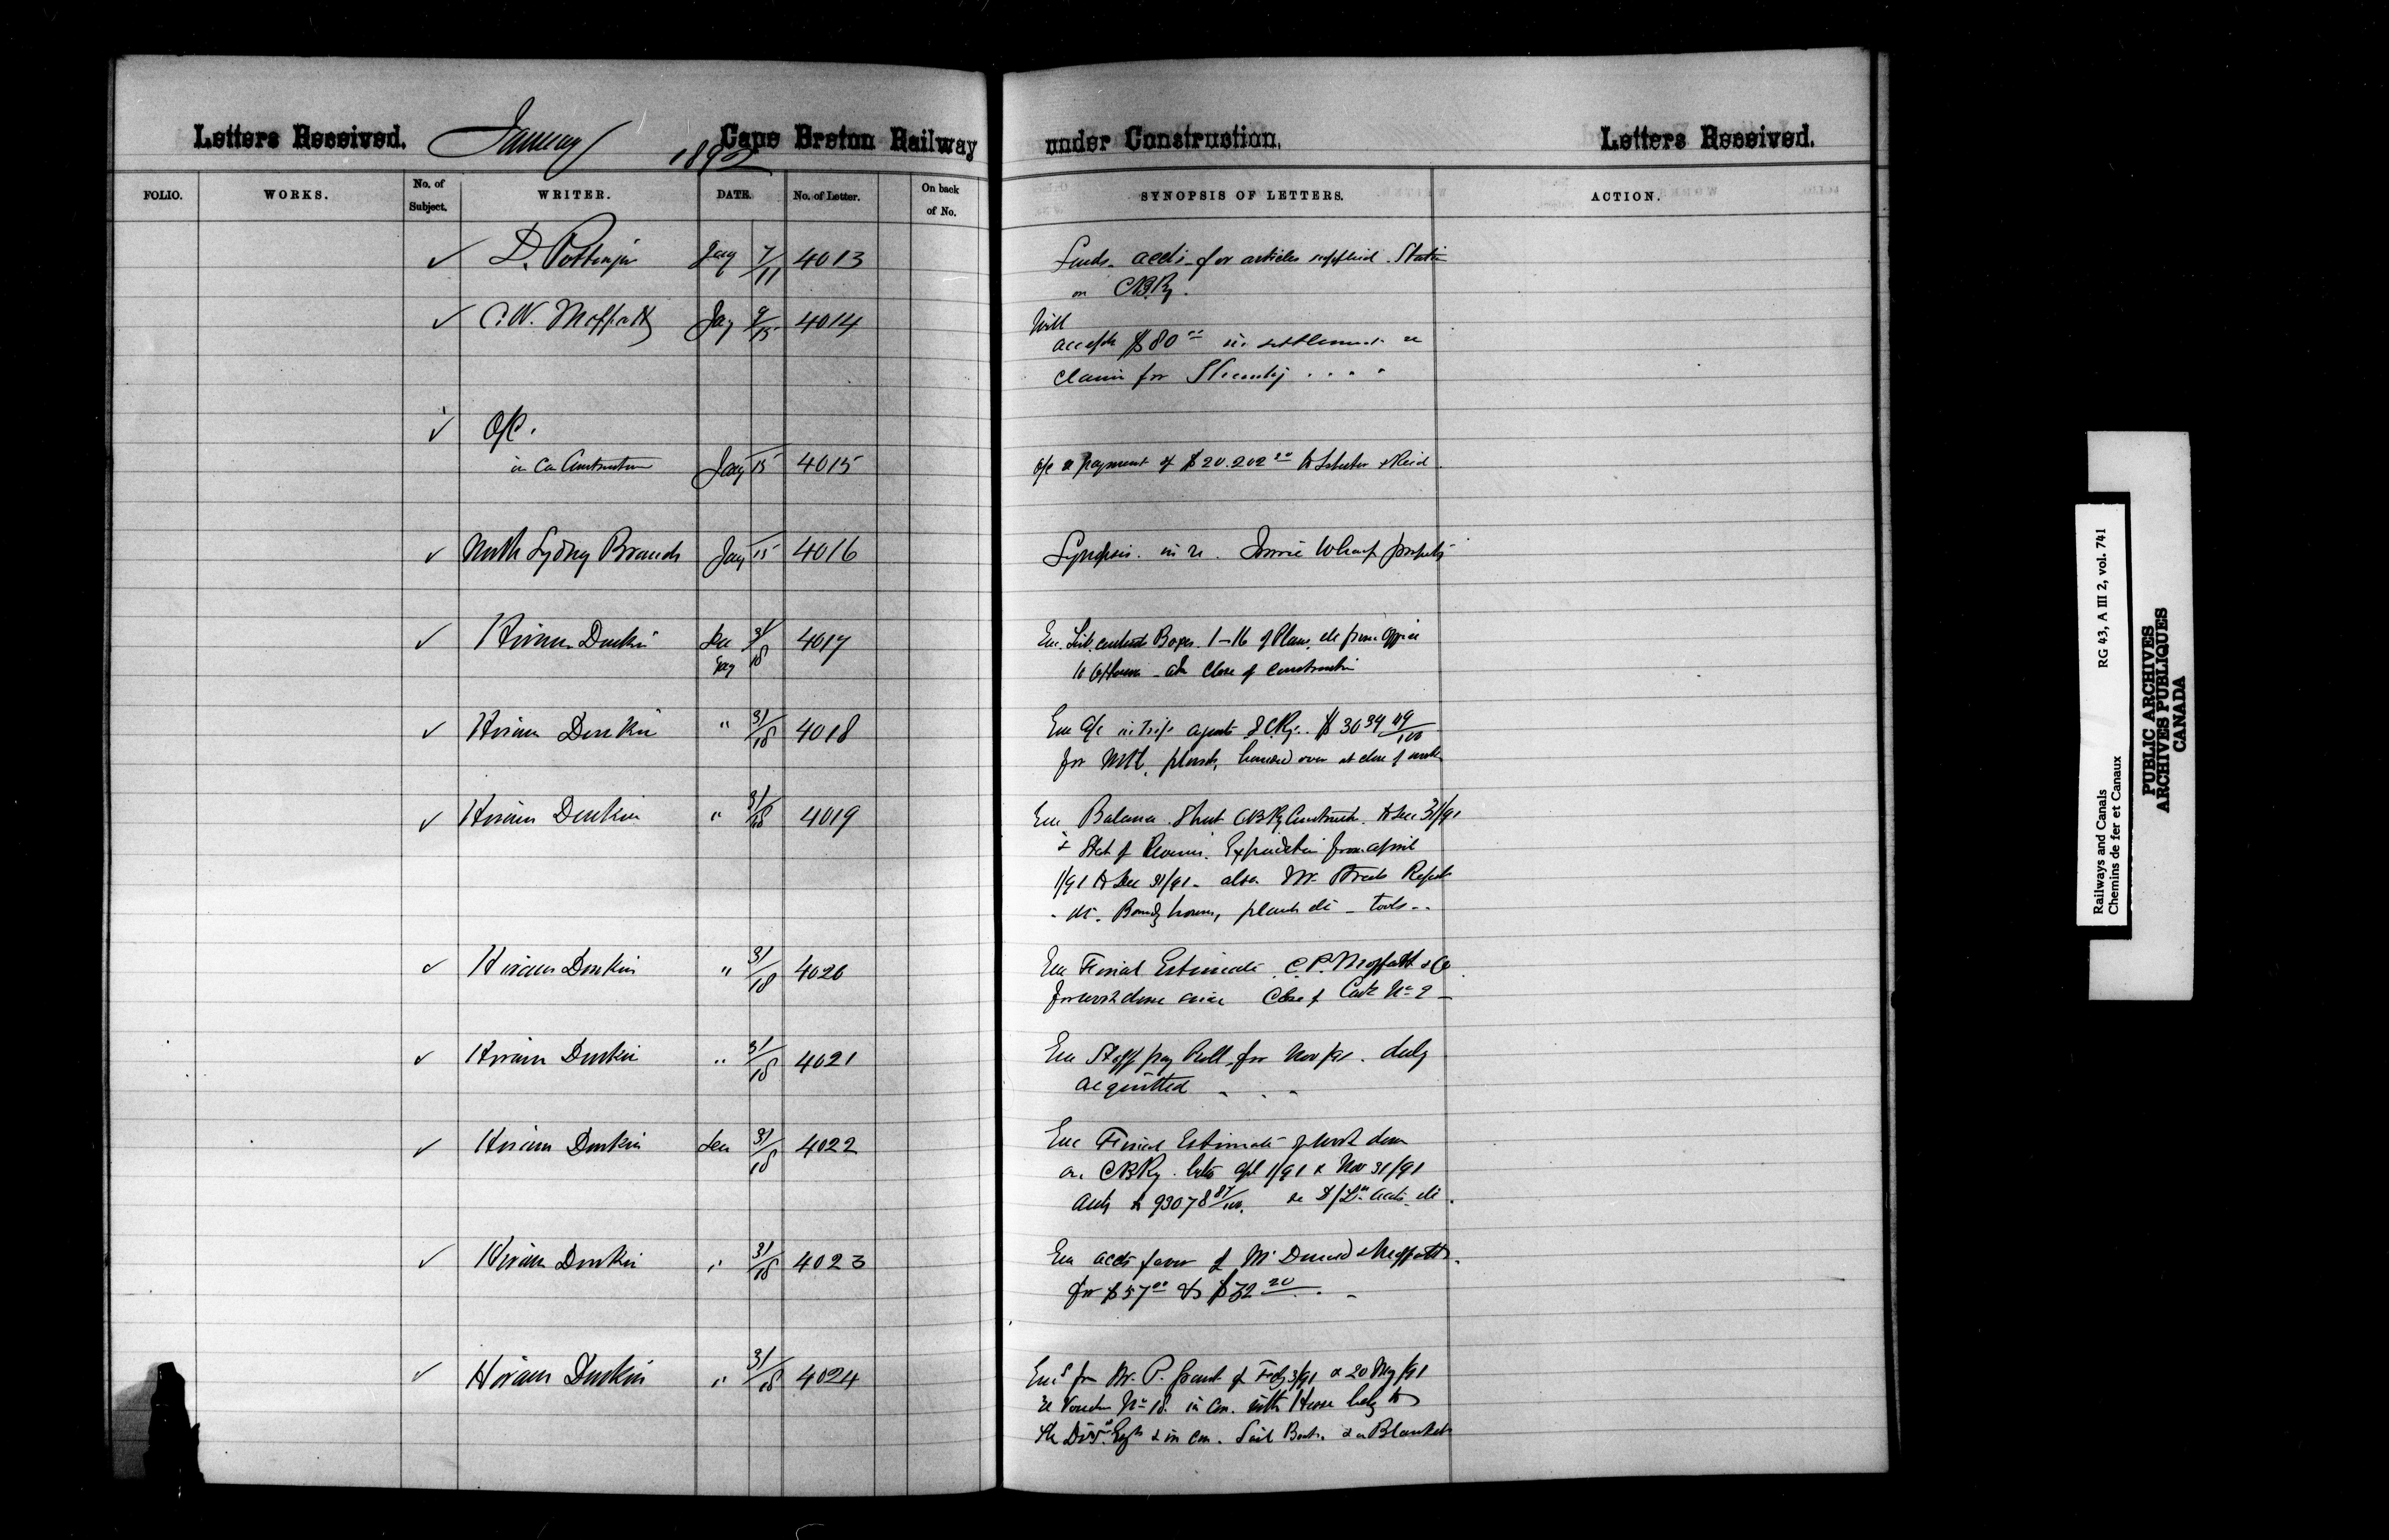 Letters Received. January 1892 Cape Breton Railway under Construction. Letters Received.
FOLIO. WORKS. No. of Subject. WRITER. DATE. No. of Letter. On back of No. SYNOPSIS OF LETTERS. ACTION.
✓ D. Pottinger Jany 7/11 4013 Sends accts for articles supplied Station
on CBRy.
✓ C.W. Moffatt Jay 9/15 4014 Will
accept $80 in settlement re
claim for
✓ O/C.
in Con Construction Jany 15 4015 o/c re payment of $20.202 to & Reid
✓ North Sydney Branch Jany 15 4016 Synopsis in re Wharf property
✓ Hiram Donkin Dec 31 4017 Enc. List. Boxes 1-16 of Plans, etc from Office
Jany 18 to Ottawa at close of construction
✓ Hiram Donkin " 31/18 4018 Enc a/c agent I C Ry. $3034 09/100
for Mtl, plant, handed over at close of work
✓ Hiram Donkin " 31/18 4019 Enc Balance Sheet CBRy Construction to Dec 31/91
& Stat of Expenditure from april
1/91 to Dec 31/91 - also Mr. Report
Boardg houses, plant etc - tools
✓ Hiram Donkin " 31/18 4020 Enc Final Estimate C.P. Moffatt & Co
for work done since Close of Cont No 2
✓ Hiram Donkin " 31/18 4021 Enc Staff pay Roll for Nov /91. duly
acquitted
✓ Hiram Donkin Dec 31/18 4022 Enc Final Estimate of work done
on CBRy. betw Apl 1/91 & Nov 31/91
93078 87/100. accts etc.
✓ Hiram Donkin " 31/18 4023 Enc accts favor of & Moffatt
for $57 00 & $32 20
✓ Hiram Donkin " 31/18 4024 Encs from Mr. P. Grant of Feby 3/91 & 20 May /91
re Voucher No 18. in con. with House belg to
the Divn Engr & in con. Sail Boat & Blankets
RG 43, A III 2, vol. 741
Railways and Canals
Chemins de fer et Canaux
PUBLIC ARCHIVES
ARCHIVES PUBLIQUES
CANADA